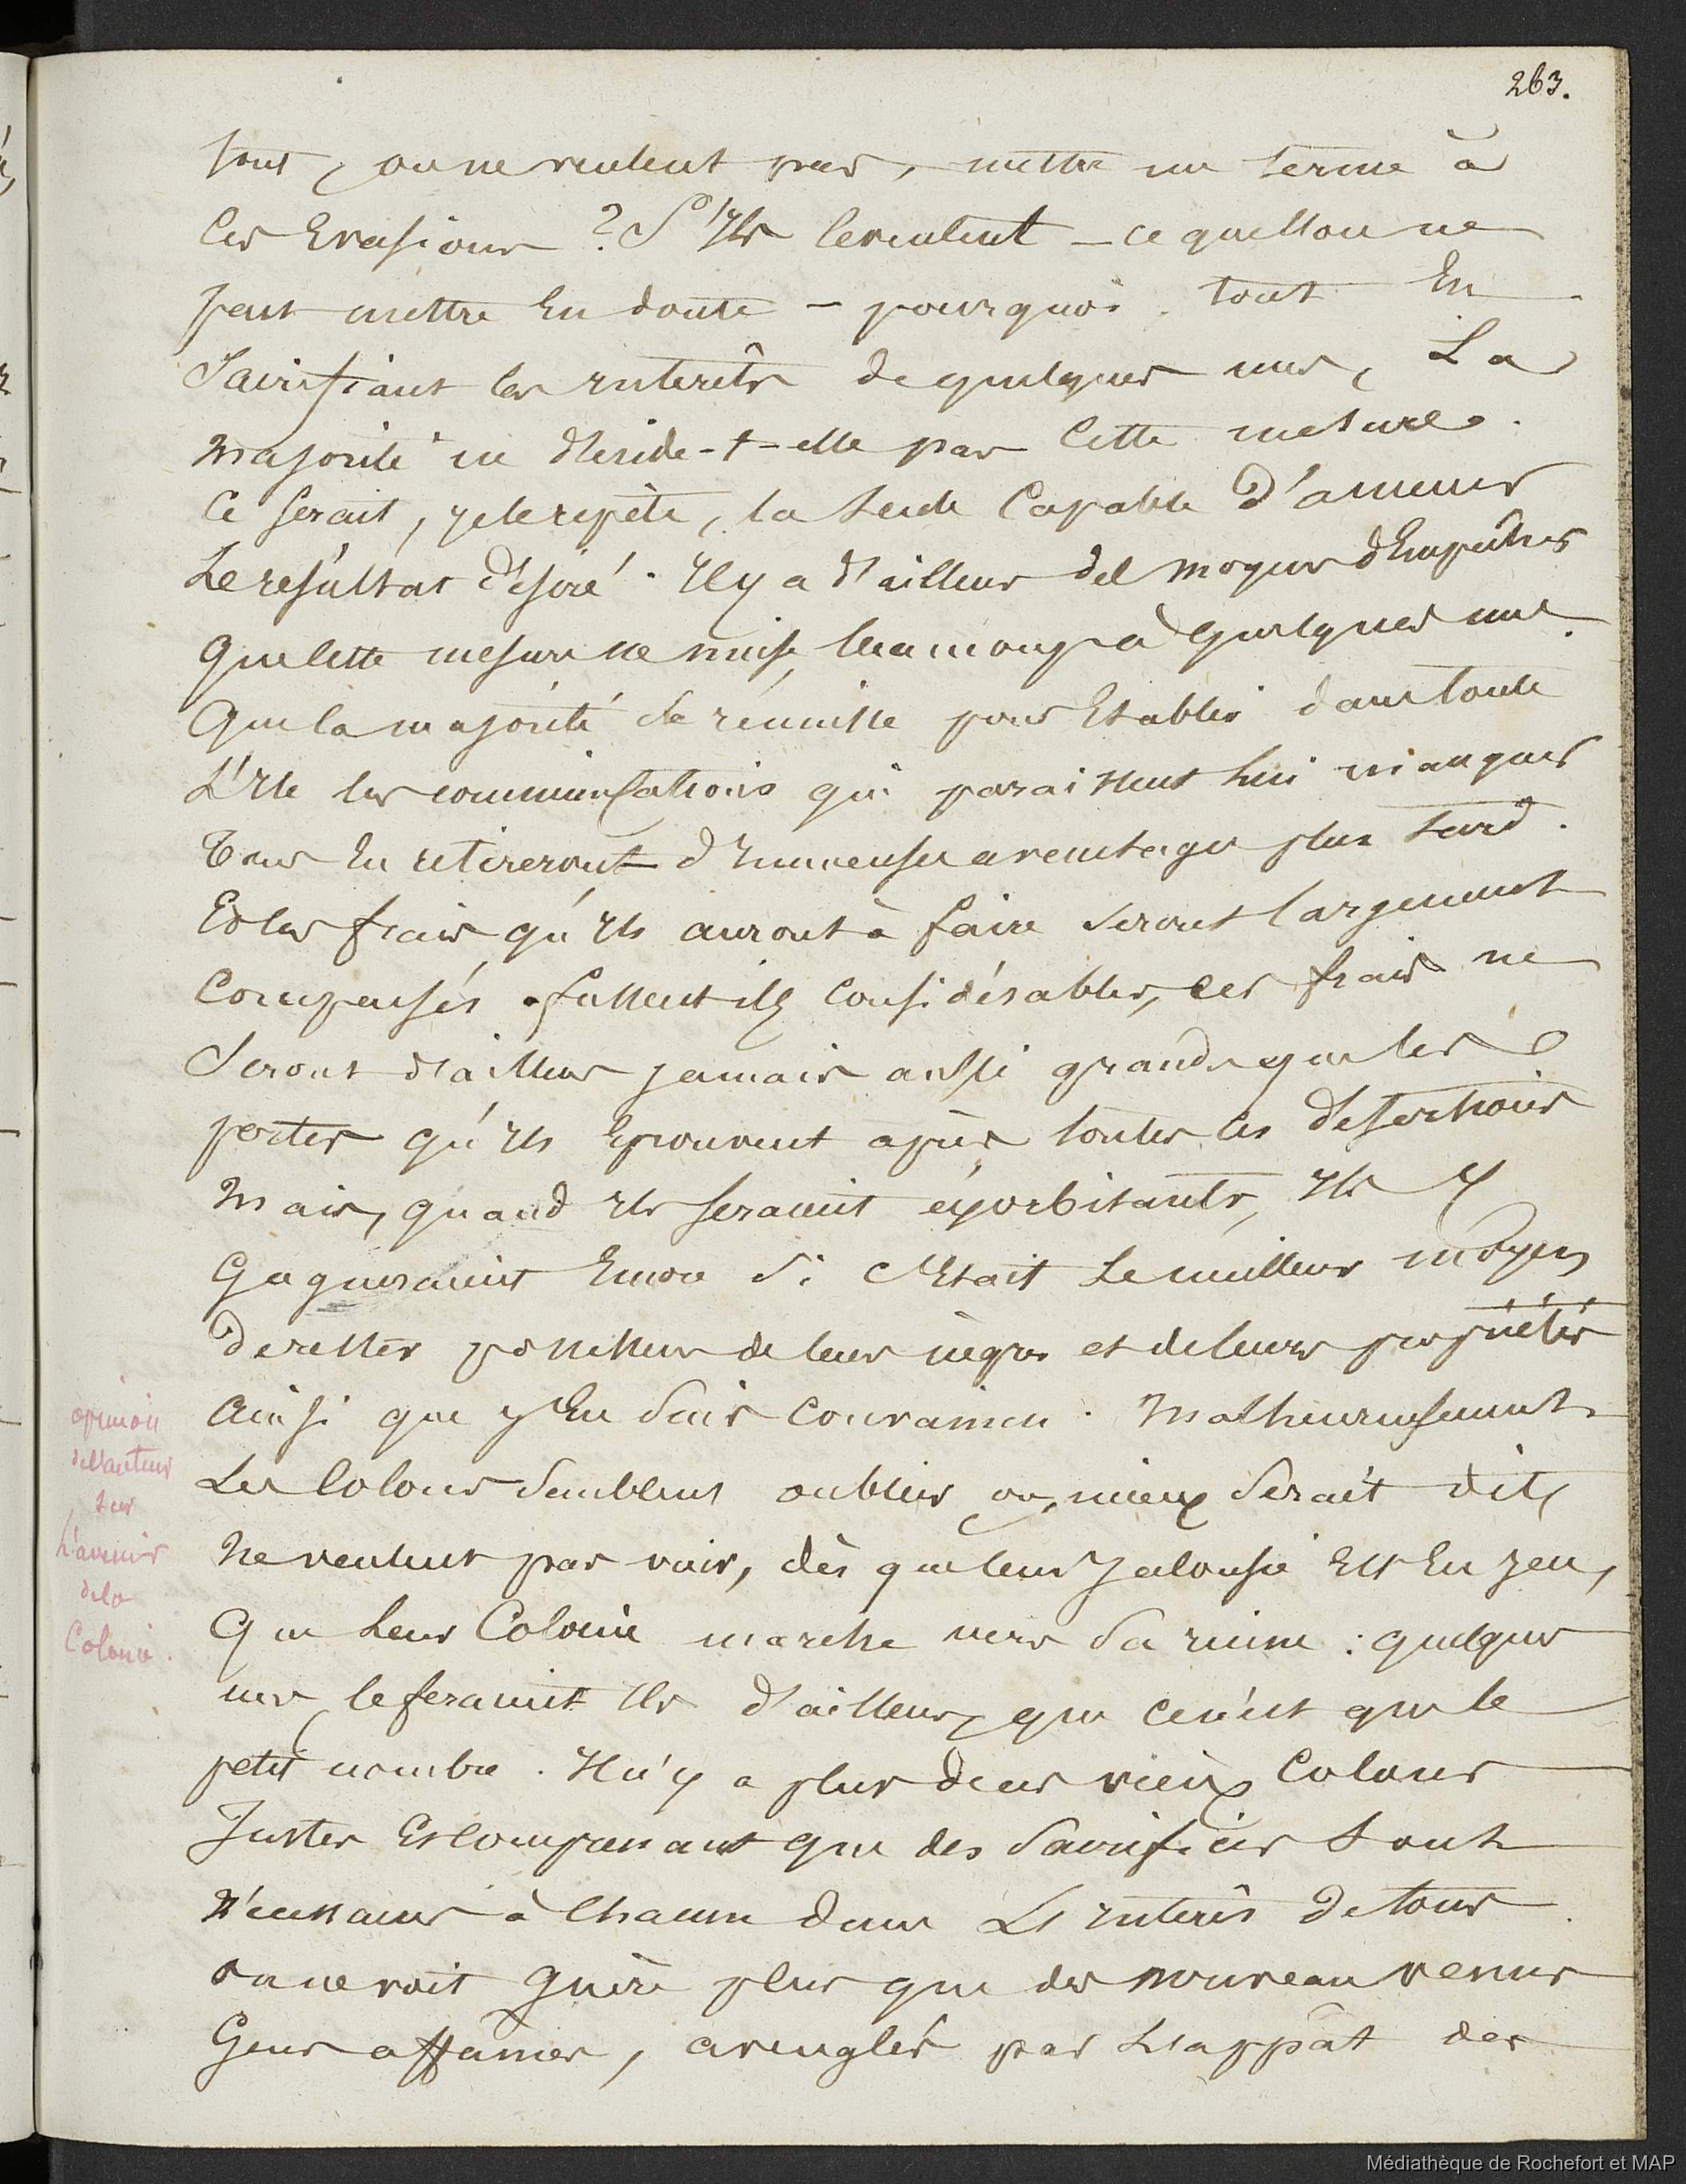 263.
sont, ou ne veulent pas, mettre un terme à
ces Evasions ? S'Ils le veulent – ce que l'on ne
peut mettre En doute – pourquoi, tout En
Sacrifiant les Interêts de quelques uns, La
majorité ne décide-t-elle pas cette mesure.
Ce serait, je le repète, la seule capable d'amener
Le résultat désiré. Il y a d'ailleurs des moyens d'Empêcher
que cette mesure ne nuise beaucoup à quelques uns.
Que la majorité se réunisse pour Etablir dans toute
L'Ile les communications qui paraissent lui manquer
Tous En retireront d'Immenses avantages plus tard.
Et les frais qu'Ils auront à faire seront largement
Compensés. fussent ils considérables, ces frais ne
Seront d'ailleurs jamais aussi grands que les
pertes qu'Ils Eprouvent après toutes les désertions
Mais, quand Ils seraient exorbitants, Ils y
Gagneraient Encore Si c'Etait Le meilleur moyen
De rester possesseurs de leurs nègres et de leurs propriétés
Ainsi que j'En Suis convaincu. Malheureusement
Les Colons Semblent oublier ou, mieux Serait dit,
Ne veulent pas voir, dès que leur Jalousie Est En jeu,
Que Leur Colonie marche vers Sa ruine : quelques
uns le feraient Ils d'ailleurs, que ce n'est que le
petit nombre. Il n'y a plus de ces vieux Colons
Justes Et comprenant que des Sacrifices Sont
Nécessaires à Chacun dans L'Intérêt De tous.
On ne voit Guère plus que des nouveau venus
Gens affamés, aveuglés par L'appât des
opinion
de l'auteur
sur
L'avenir
de la
Colonie.
Médiathèque de Rochefort et MAP